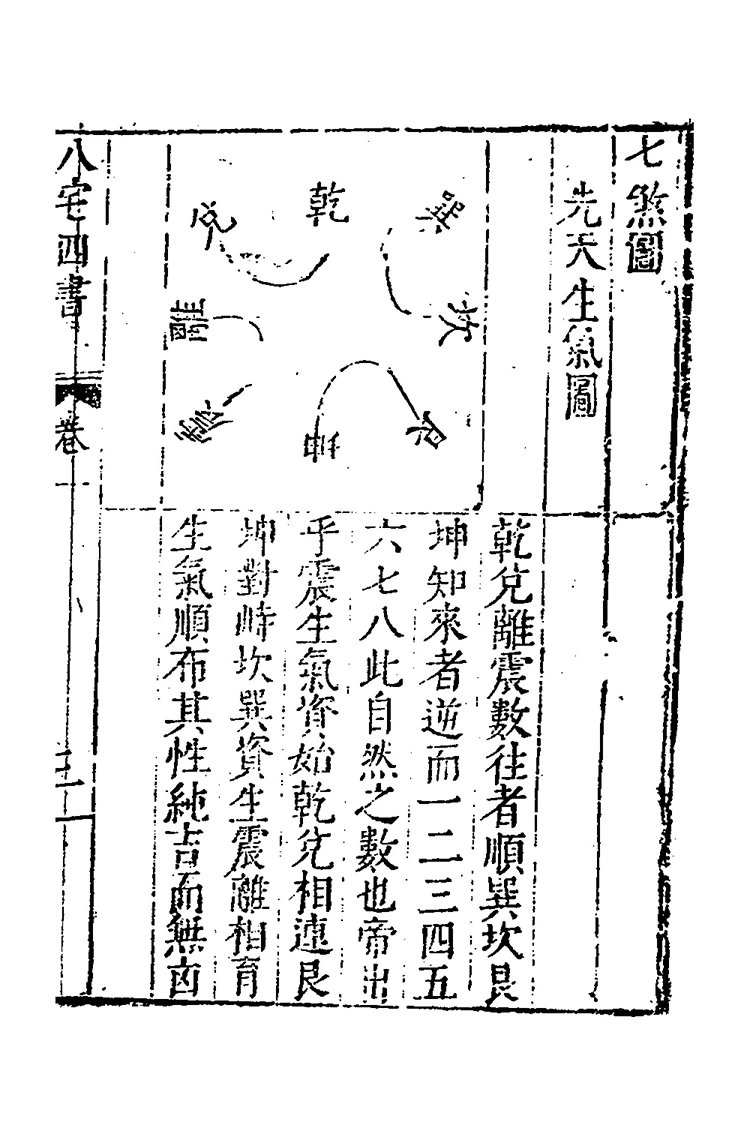 七煞圖
先天生氣圖
乾
兌
巽
離
坎
震
坤
艮
乾兌離震數往者順巽坎艮
坤知來者逆而一二三四五
六七八此自然之數也帝出
乎震生氣資始乾兌相連艮
坤對峙坎巽資生震離相育
生氣順布其性純吉而無凶
八宅四書
卷一